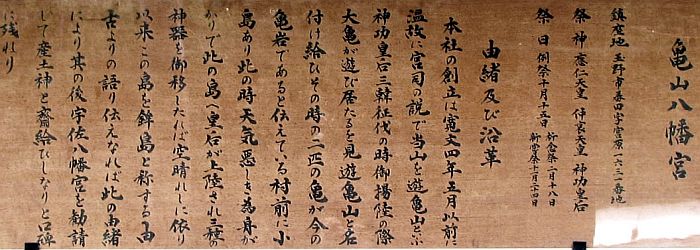 亀山八幡宮
鎮座地 玉野市番田字宮原一六三一番地
祭神 應仁天皇 仲哀天皇 神功皇后
祭日 例祭十月十五日 祈念祭一月十八日
新嘗祭十二月二十四日
由緒及び沿革
本社の創立は寛文四年五月以前に
温故に宮司の説で当山を遊亀山とふ
神功皇后三韓征伐の時御揚陸の際
大亀が遊び居たるを見遊亀山と名
付け給ひその時の二匹の亀が今の
亀岩であると伝えている村前に小
島あり此の時天気悪しき為舟が
かりで此の島へ皇后が上陸され種の
神器を御移したれば空晴れしに依り
以来この島を鉾島と称する由
古よりの語り伝えなれば此の由緒
により其の後宇佐八幡宮を勧請
して産土神と齋給ひしなりと口碑
に残れり